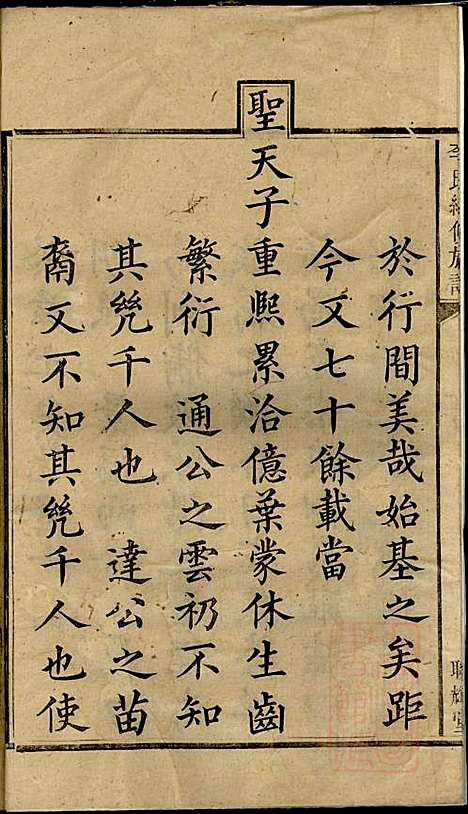 李氏續修族譜
於行間美哉始基之矣距
今又七十餘載當
聖天子重熙累洽億葉蒙休生齒
繁衍　通公之雲礽不知
其幾千人也　達公之苗
裔又不知其幾千人也使